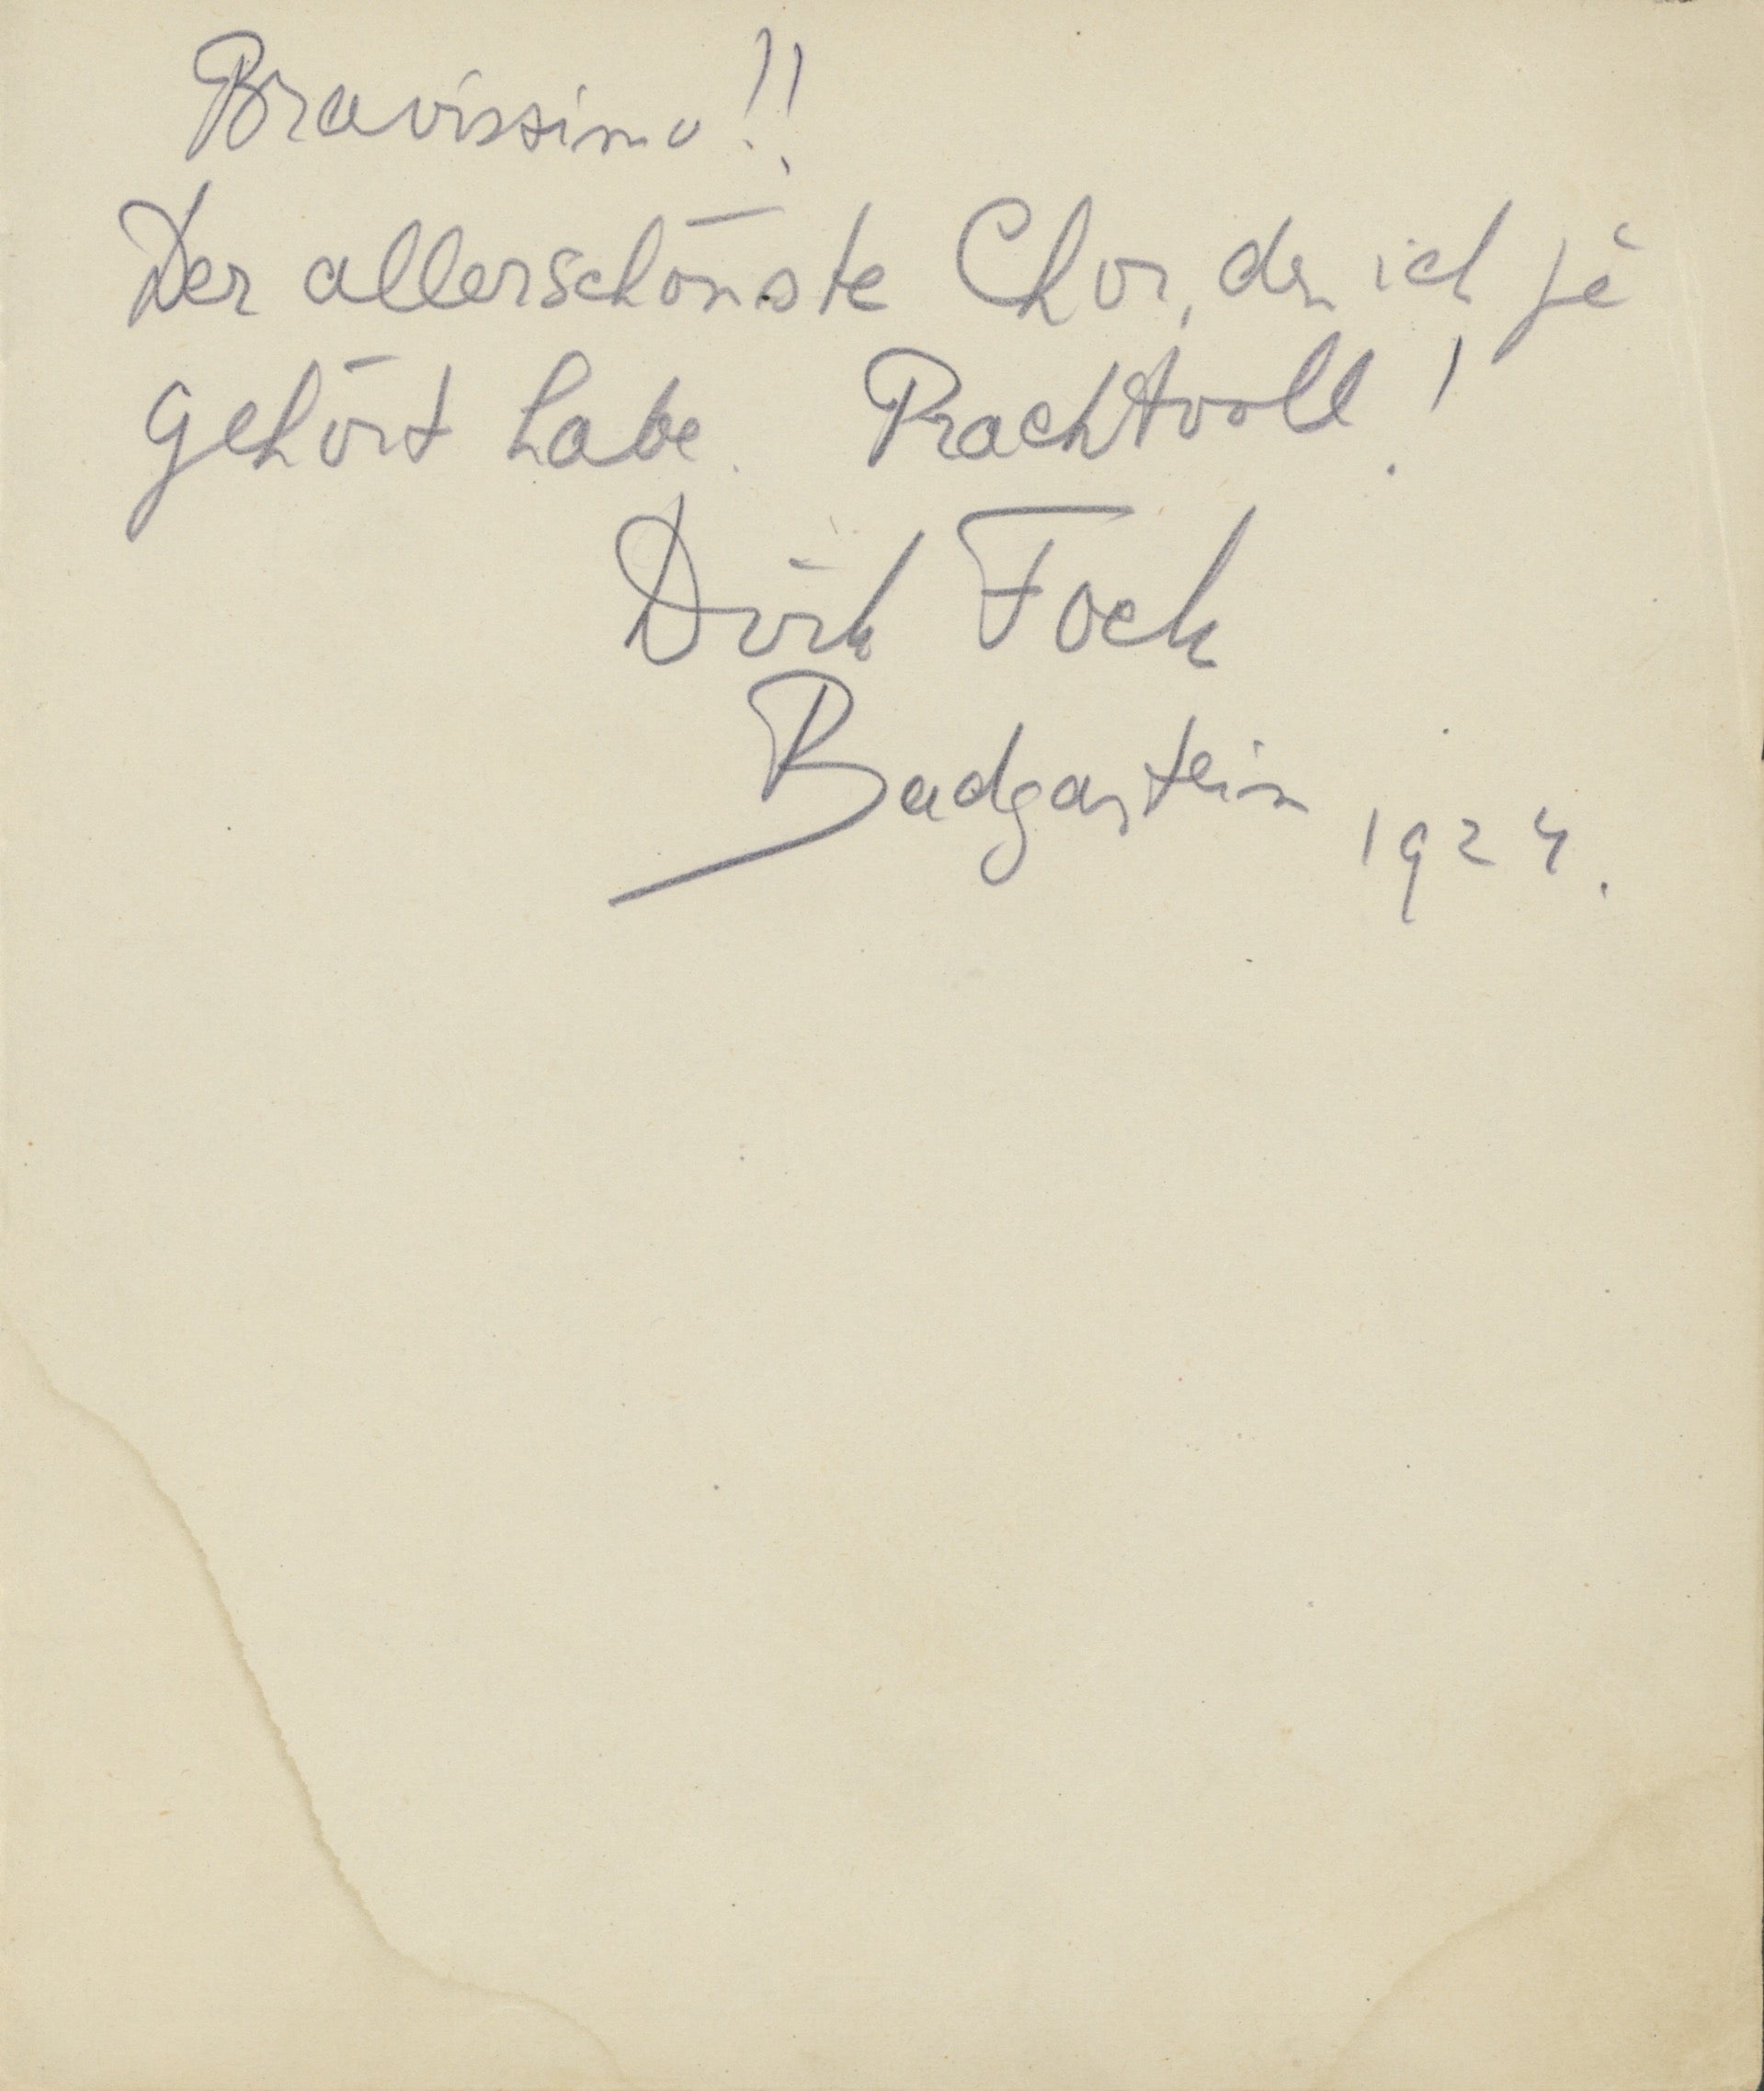 Bravissimo!!
Der allerschönste Chor, den ich je
gehört habe. Prachtvoll!
Dirk Fock
Badgastein 1924.